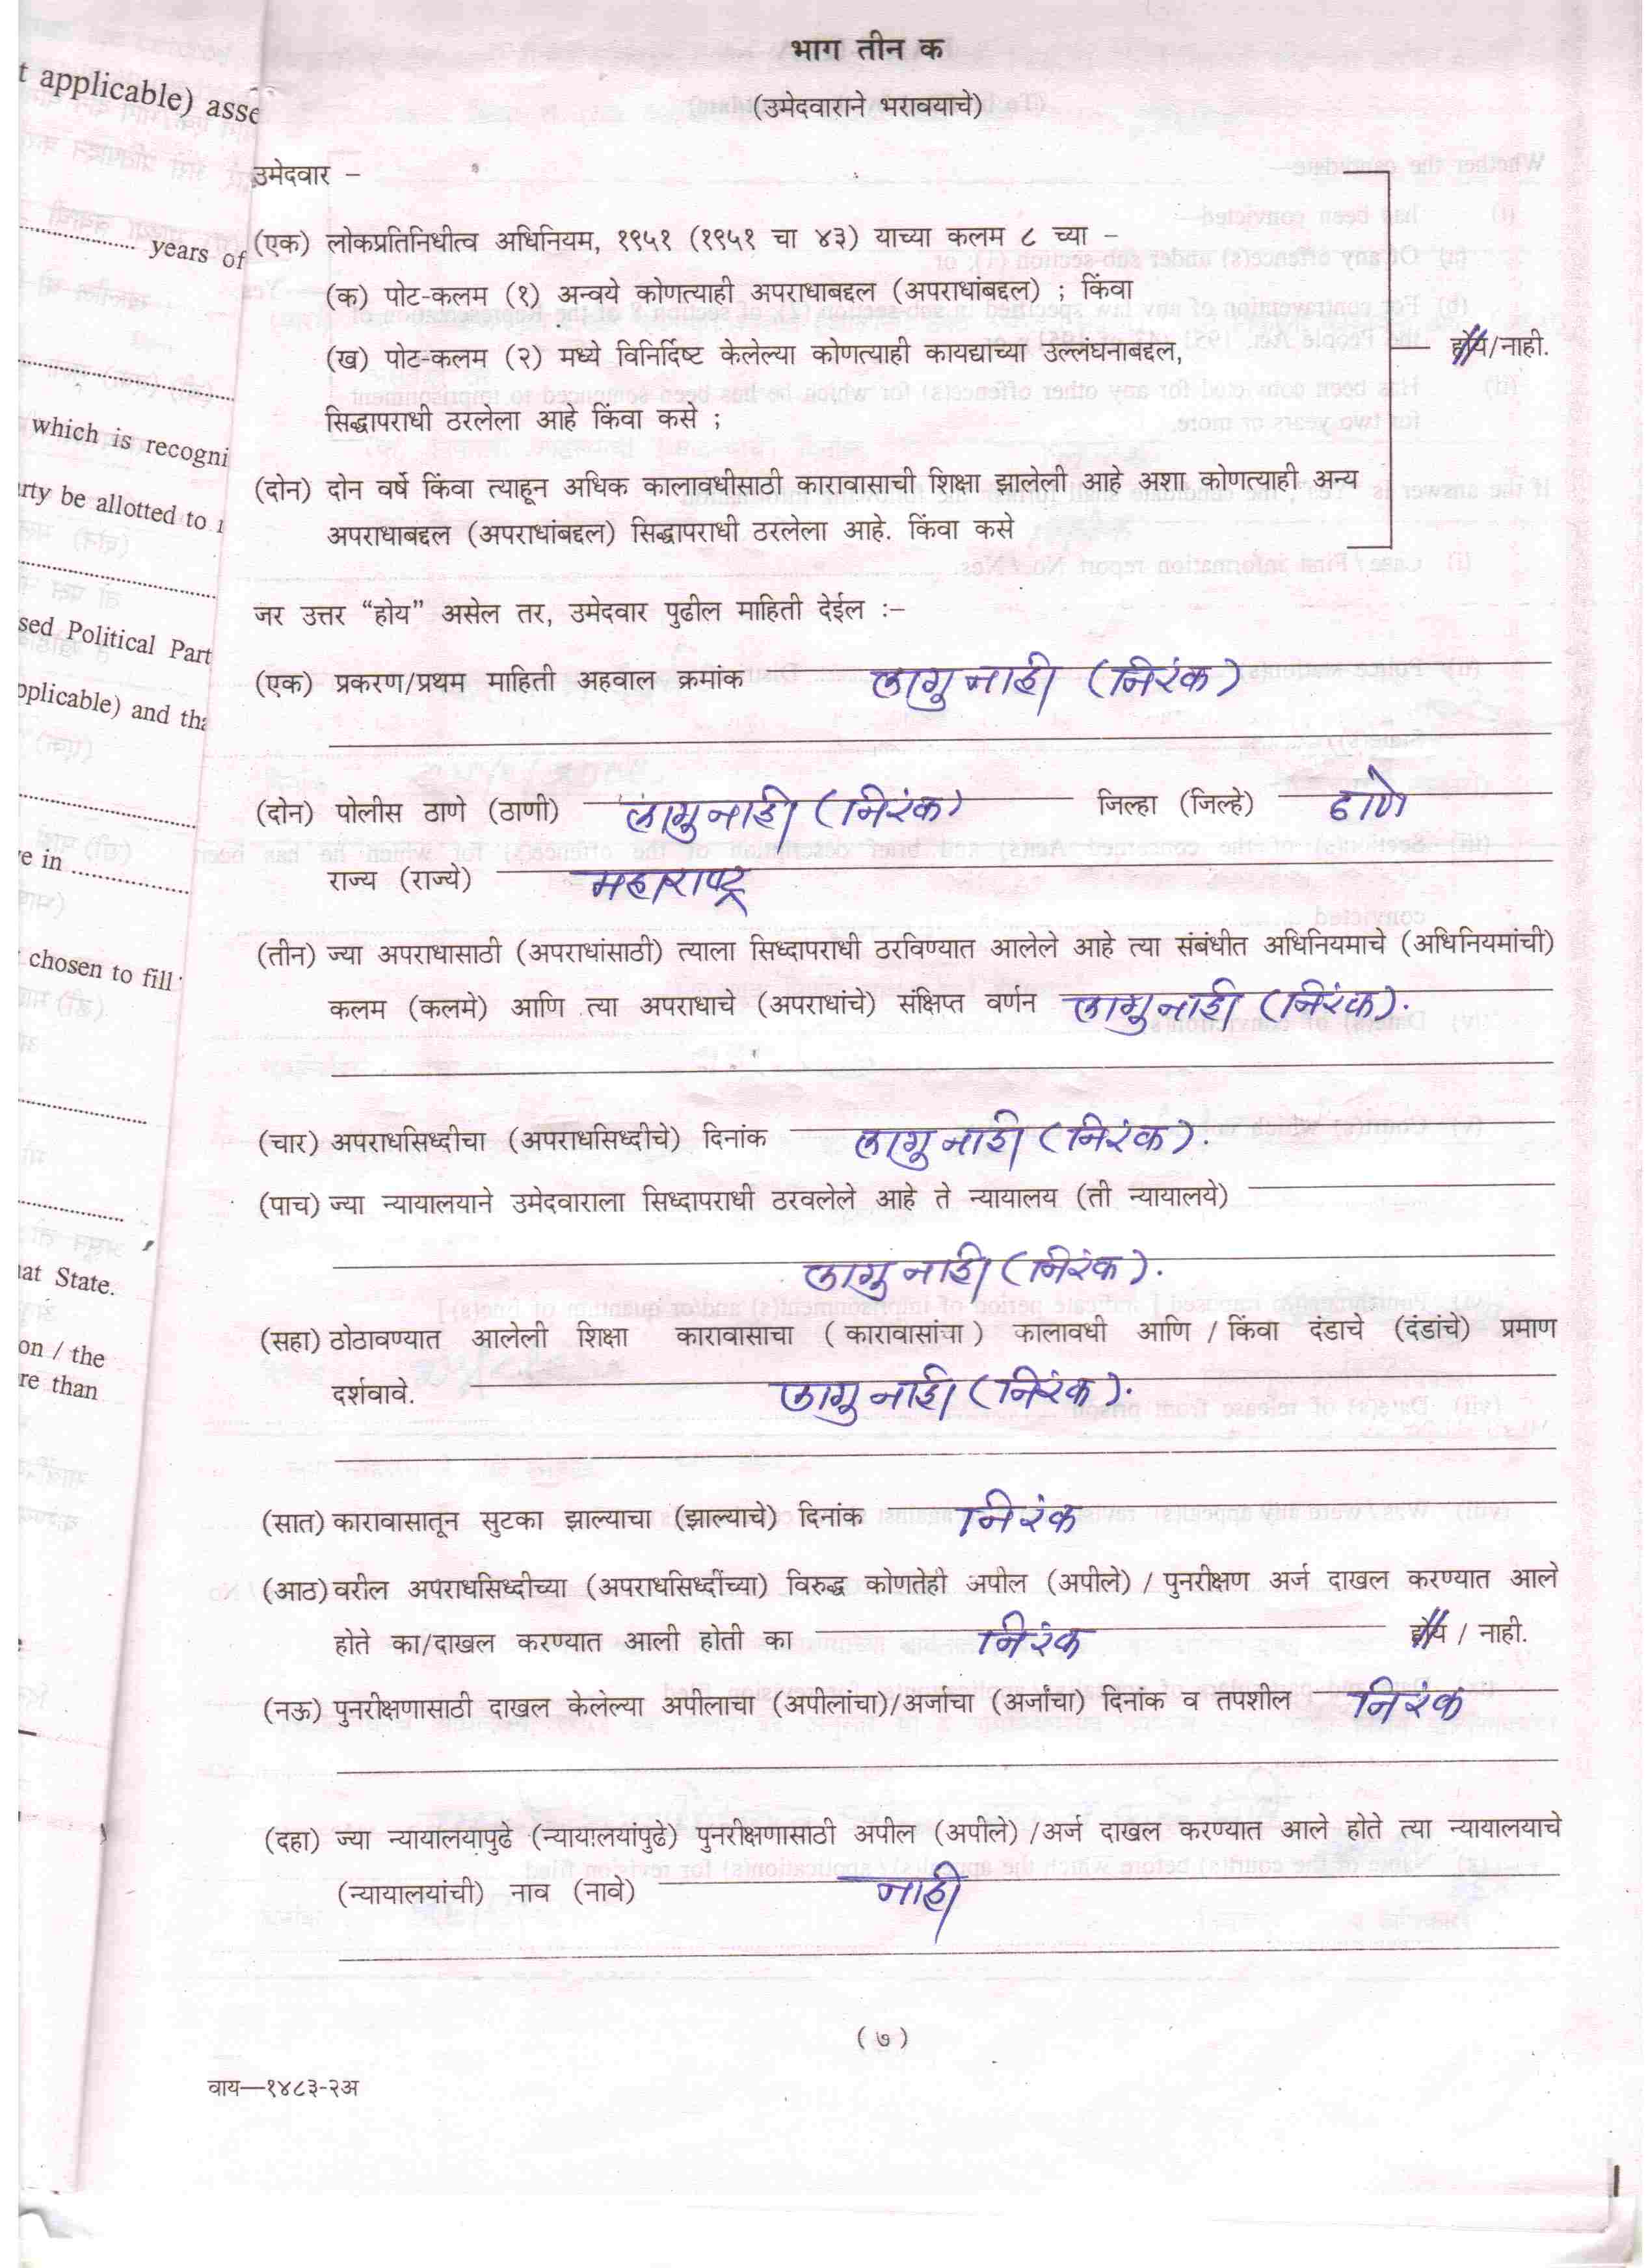 भाग तीन क
(उमेदवाराने भरावयाचे)
t applicable) asse
उमेदवार –
years of
(एक) लोकप्रतिनिधीत्व अधिनियम, १९५१ (१९५१ चा ४३) याच्या कलम ८ च्या –
(क) पोट-कलम (१) अन्वये कोणत्याही अपराधाबद्दल (अपराधांबद्दल) ; किंवा
(ख) पोट-कलम (२) मध्ये विनिर्दिष्ट केलेल्या कोणत्याही कायद्याच्या उल्लंघनाबद्दल,
होय/नाही.
सिद्धापराधी ठरलेला आहे किंवा कसे ;
which is recogni
(दोन) दोन वर्षे किंवा त्याहून अधिक कालावधीसाठी कारावासाची शिक्षा झालेली आहे अशा कोणत्याही अन्य
rty be allotted to
अपराधाबद्दल (अपराधांबद्दल) सिद्धापराधी ठरलेला आहे. किंवा कसे
जर उत्तर “होय” असेल तर, उमेदवार पुढील माहिती देईल :–
sed Political Part
(एक) प्रकरण/प्रथम माहिती अहवाल क्रमांक लागु नाही (निरंक)
pplicable) and tha
(दोन) पोलीस ठाणे (ठाणी) लागु नाही (निरंक) जिल्हा (जिल्हे) ठाणे
e in
राज्य (राज्ये) महाराष्ट्र
(तीन) ज्या अपराधासाठी (अपराधांसाठी) त्याला सिध्दापराधी ठरविण्यात आलेले आहे त्या संबंधीत अधिनियमाचे (अधिनियमांची)
chosen to fill
कलम (कलमे) आणि त्या अपराधाचे (अपराधांचे) संक्षिप्त वर्णन लागु नाही (निरंक).
(चार) अपराधसिध्दीचा (अपराधसिध्दीचे) दिनांक लागु नाही (निरंक).
(पाच) ज्या न्यायालयाने उमेदवाराला सिध्दापराधी ठरवलेले आहे ते न्यायालय (ती न्यायालये)
लागु नाही (निरंक).
at State.
(सहा) ठोठावण्यात आलेली शिक्षा कारावासाचा ( कारावासांचा ) कालावधी आणि / किंवा दंडाचे (दंडांचे) प्रमाण
on / the
दर्शवावे. लागु नाही (निरंक).
re than
(सात) कारावासातून सुटका झाल्याचा (झाल्याचे) दिनांक निरंक
(आठ) वरील अपराधसिध्दीच्या (अपराधसिध्दींच्या) विरुद्ध कोणतेही अपील (अपीले) / पुनरीक्षण अर्ज दाखल करण्यात आले
होते का/दाखल करण्यात आली होती का निरंक होय / नाही.
(नऊ) पुनरीक्षणासाठी दाखल केलेल्या अपीलाचा (अपीलांचा)/अर्जाचा (अर्जांचा) दिनांक व तपशील निरंक
(दहा) ज्या न्यायालयापुढे (न्यायालयांपुढे) पुनरीक्षणासाठी अपील (अपीले) /अर्ज दाखल करण्यात आले होते त्या न्यायालयाचे
(न्यायालयांची) नाव (नावे) नाही
( ७ )
वाय—१४८३-२अ